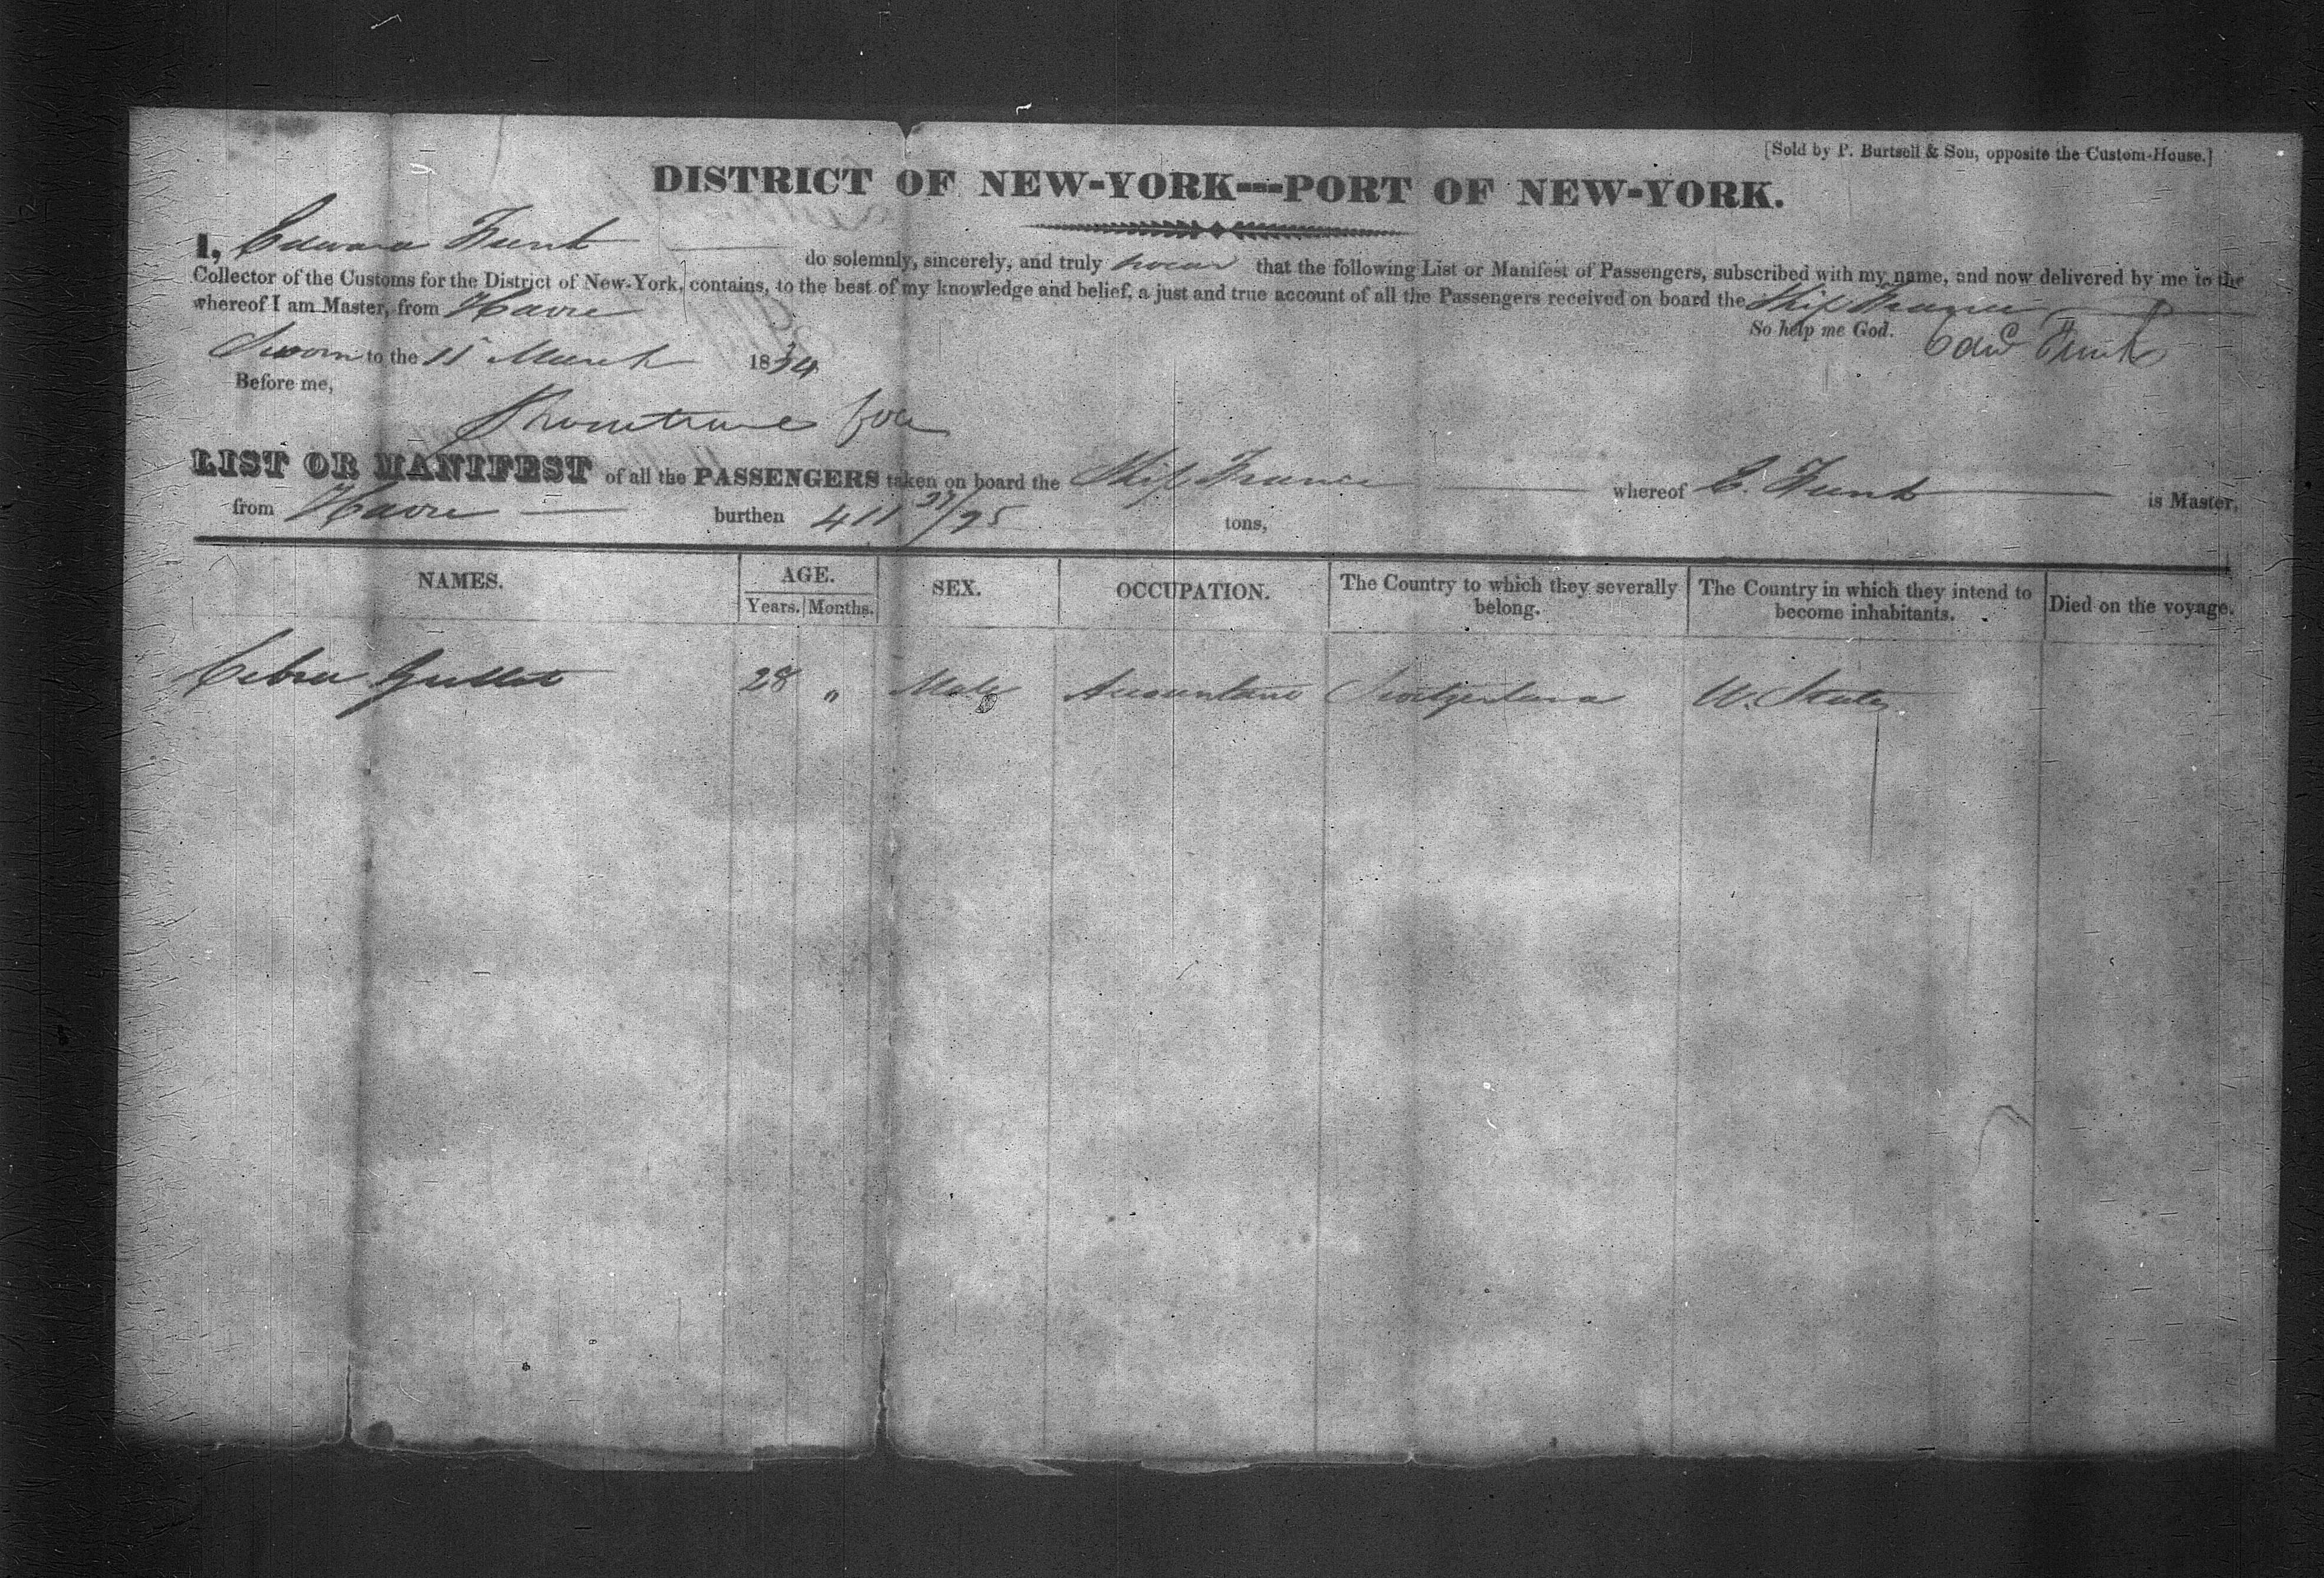 [Sold by P. Burtsell & Son, opposite the Custom-House.]
DISTRICT OF NEW-YORK---PORT OF NEW-YORK.
I, Edward Funk do solemnly, sincerely, and truly swear that the following List or Manifest of Passengers, subscribed with my name, and now delivered by me to the
Collector of the Customs for the District of New-York, contains, to the best of my knowledge and belief, a just and true account of all the Passengers received on board the Ship France
whereof I am Master, from Havre
So help me God.
Sworn to the 15 March 1834
Edwd Funk
Before me,
LIST OR MANIFEST of all the PASSENGERS taken on board the Ship France whereof E. Funk is Master,
from Havre burthen 411 /95 tons,
NAMES. AGE. SEX. OCCUPATION. The Country to which they severally belong. The Country in which they intend to become inhabitants. Died on the voyage.
Years. Months.
28 " Male Accountant Switzerland U. States